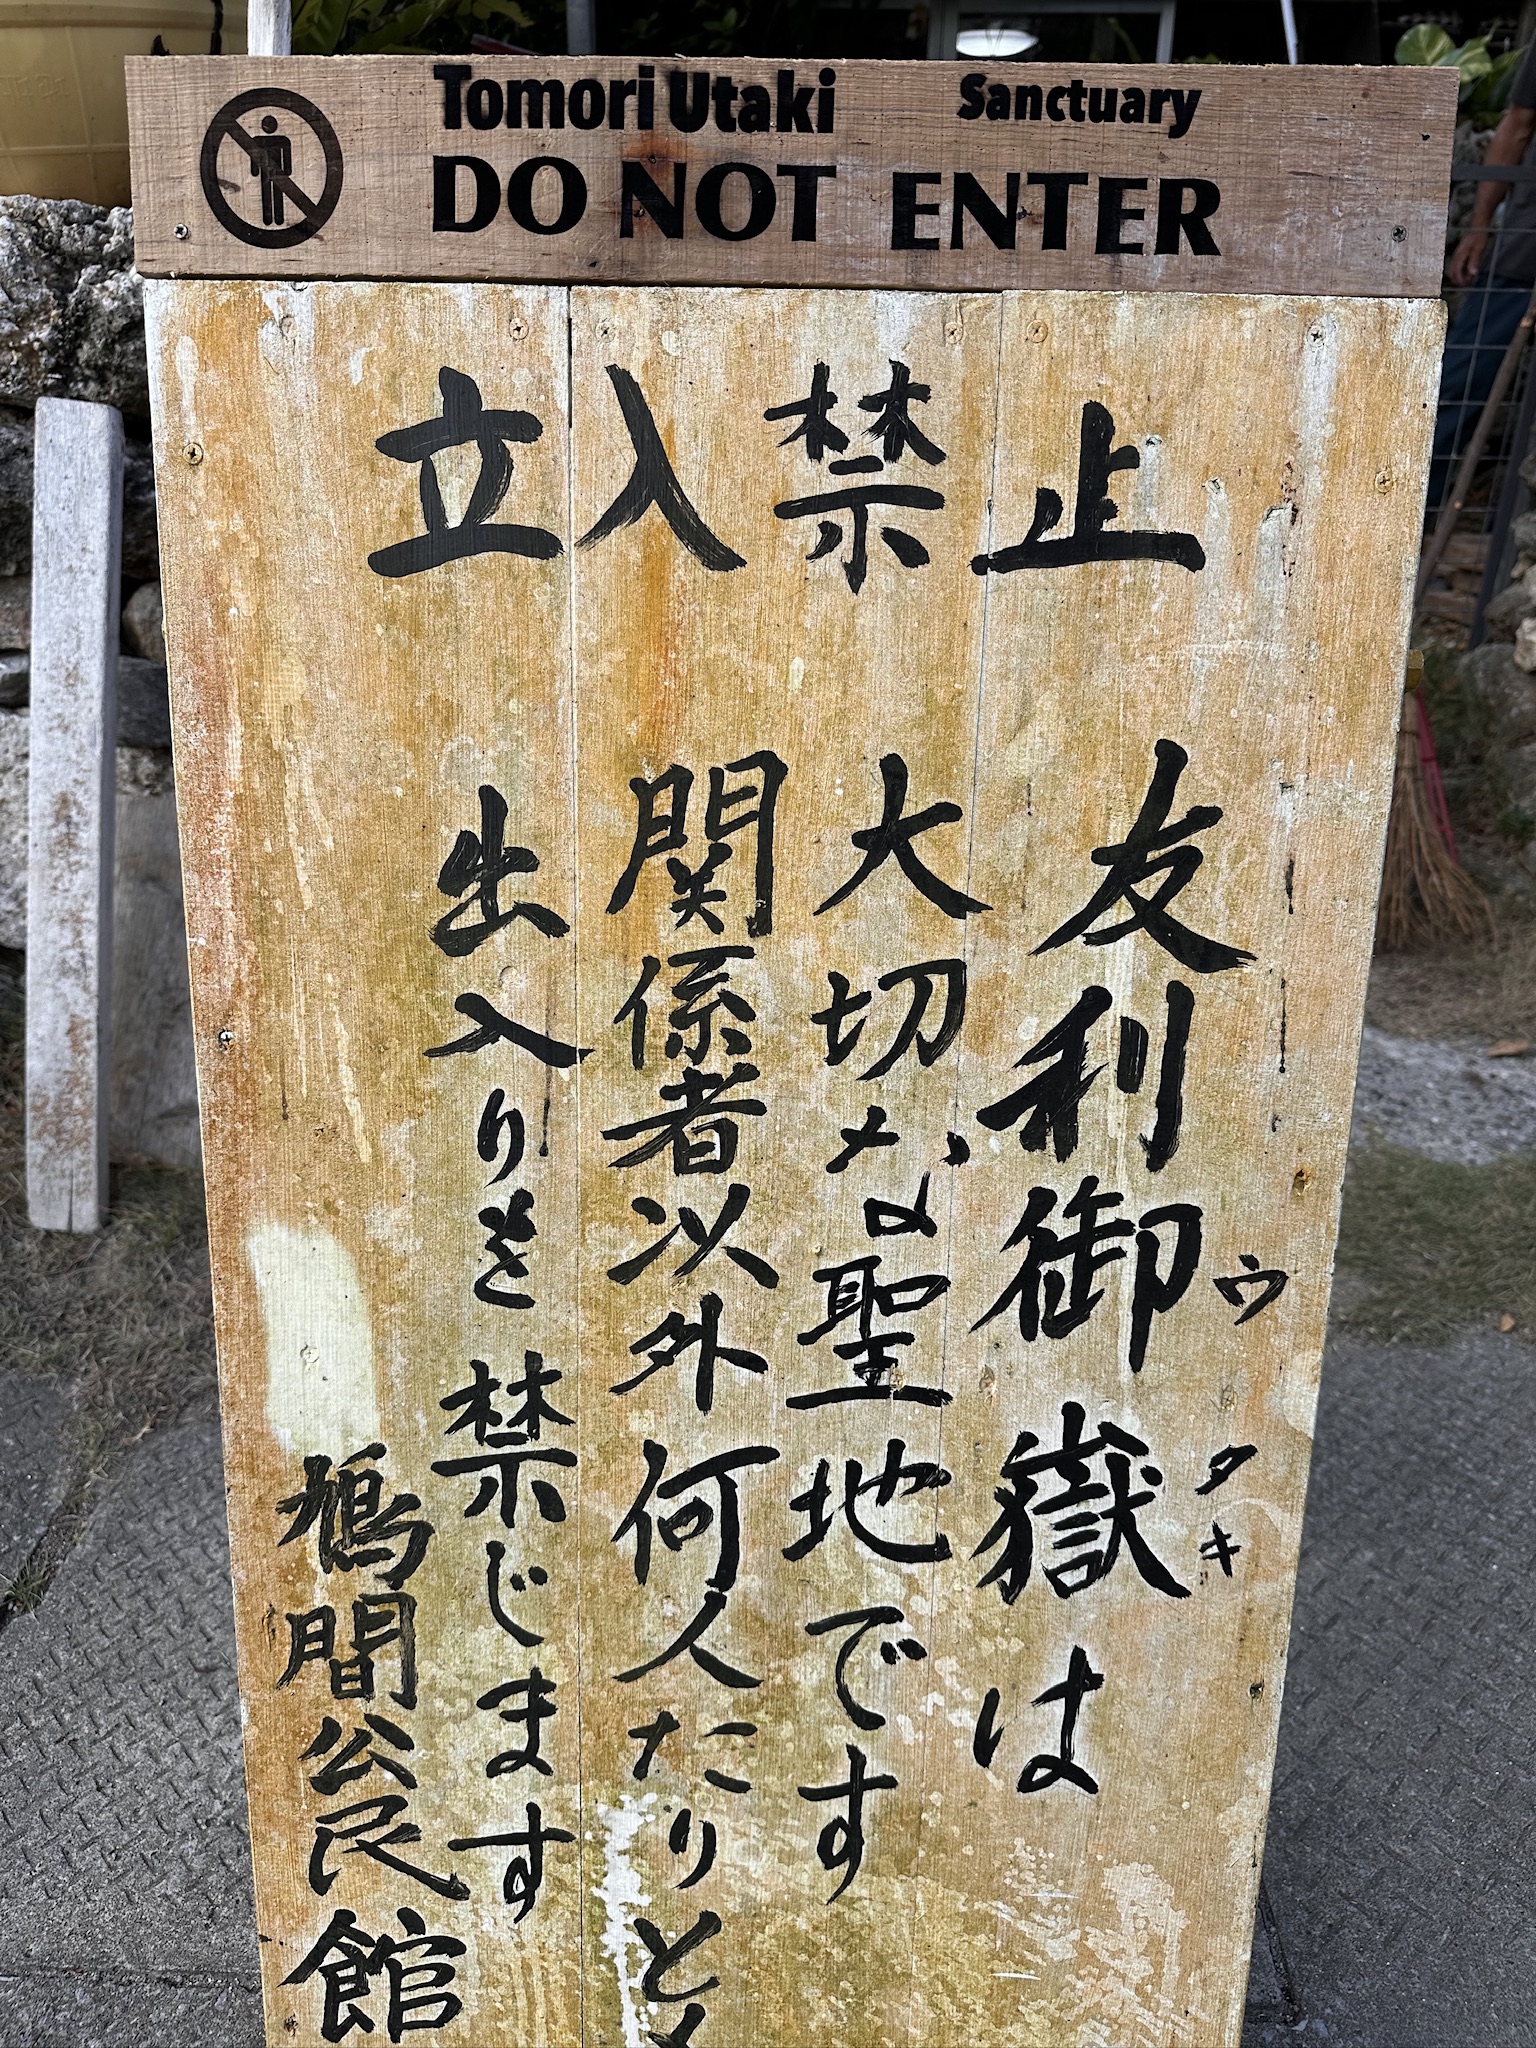 Tomori Utaki Sanctuary
DO NOT ENTER
立入禁止
友利御嶽は
ウタキ
大切な聖地です
関係者以外何人たりとも
出入りを禁じます
鳩間公民館